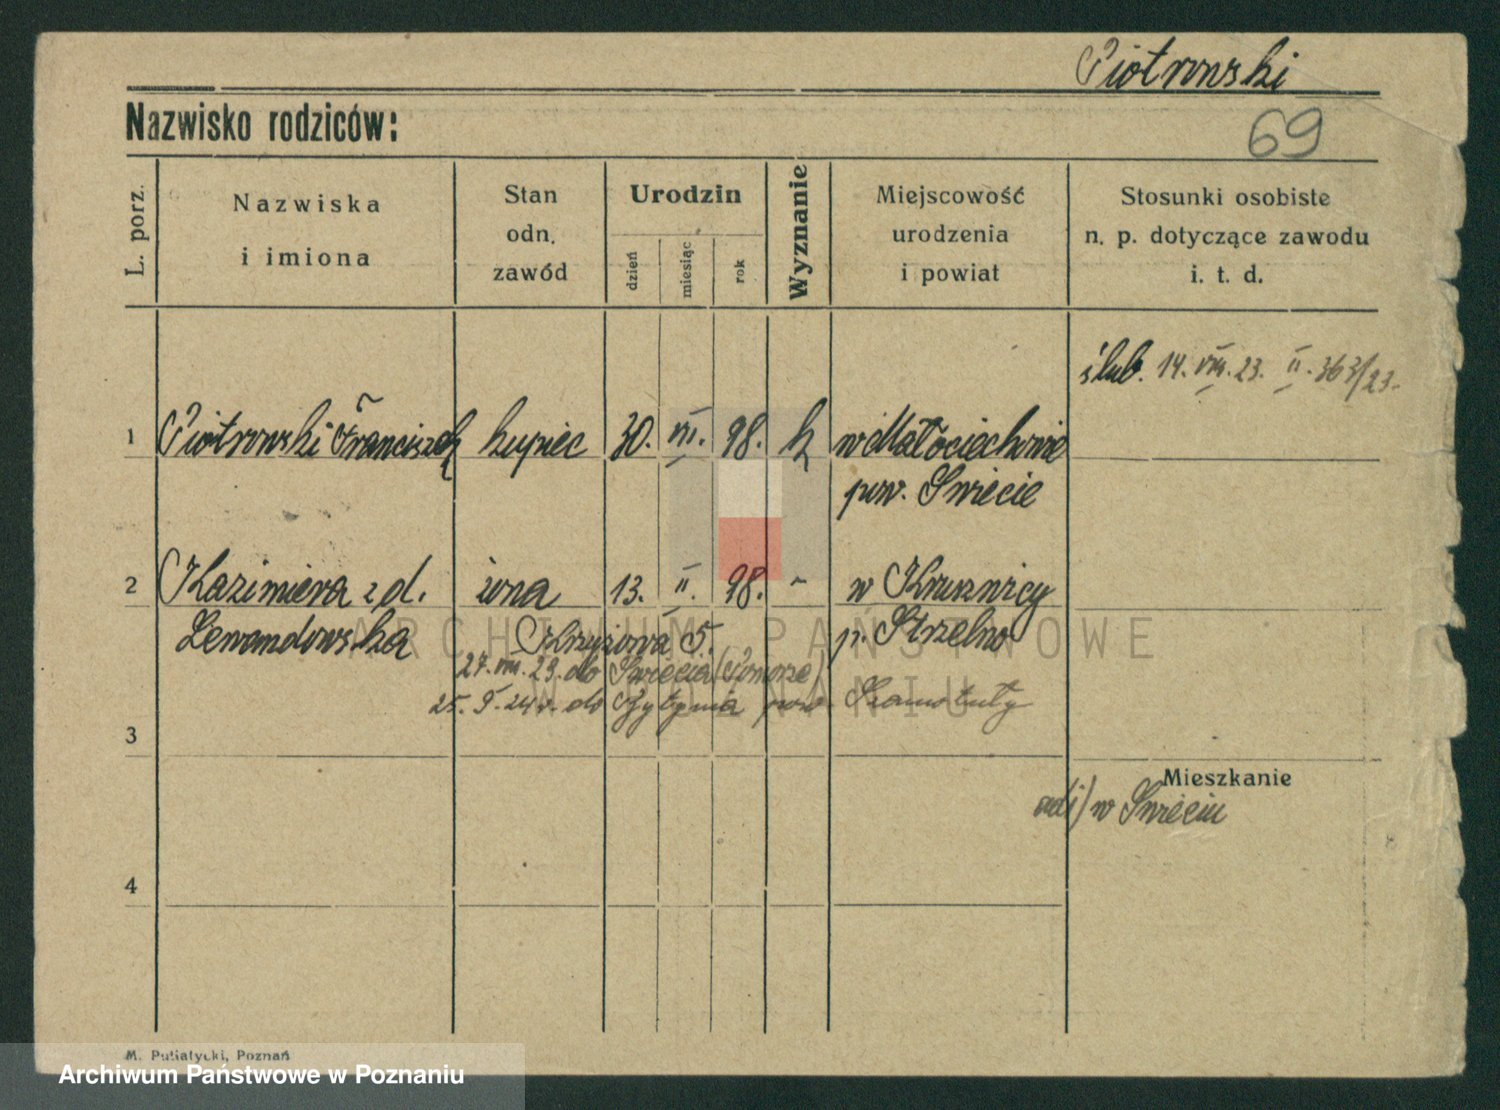 Piotrowski
Nazwisko rodziców:
69
L. porz.
Nazwiska
i imiona
Stan
odn.
zawód
Urodzin
dzień
miesiąc
rok
Wyznanie
Miejscowość
urodzenia
i powiat
Stosunki osobiste
n. p. dotyczące zawodu
i. t. d.
ślub. 14. VIII. 23. II. 363/23.
1 Piotrowski Franciszek kupiec 30. VII. 98. k w Małociechowie
pow. Swiecie
2 Kazimiera z d. żona 13. II. 98. - w Krusznicy
Lewandowska Krzyżowa 5. p. Strzelno
27. VIII. 23. do Swiecia (Pomorze)
25. 9. 24 r. do pow. Szamotuły
3
Mieszkanie
w Swieciu
4
ARCHIWUM PAŃSTWOWE
W POZNANIU
M. Putiatycki, Poznań
Archiwum Państwowe w Poznaniu